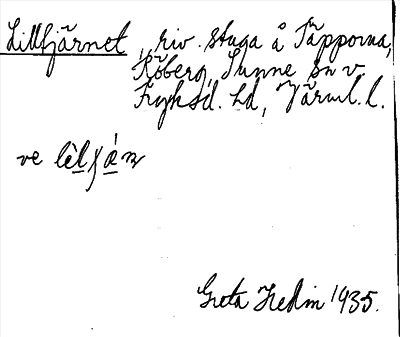 Lilltjärnet, riv. stuga å Täpporna,
Råberg, Sunne sn v
Fryksd. hd, Värml. l.
ve
Greta Hedin 1935.